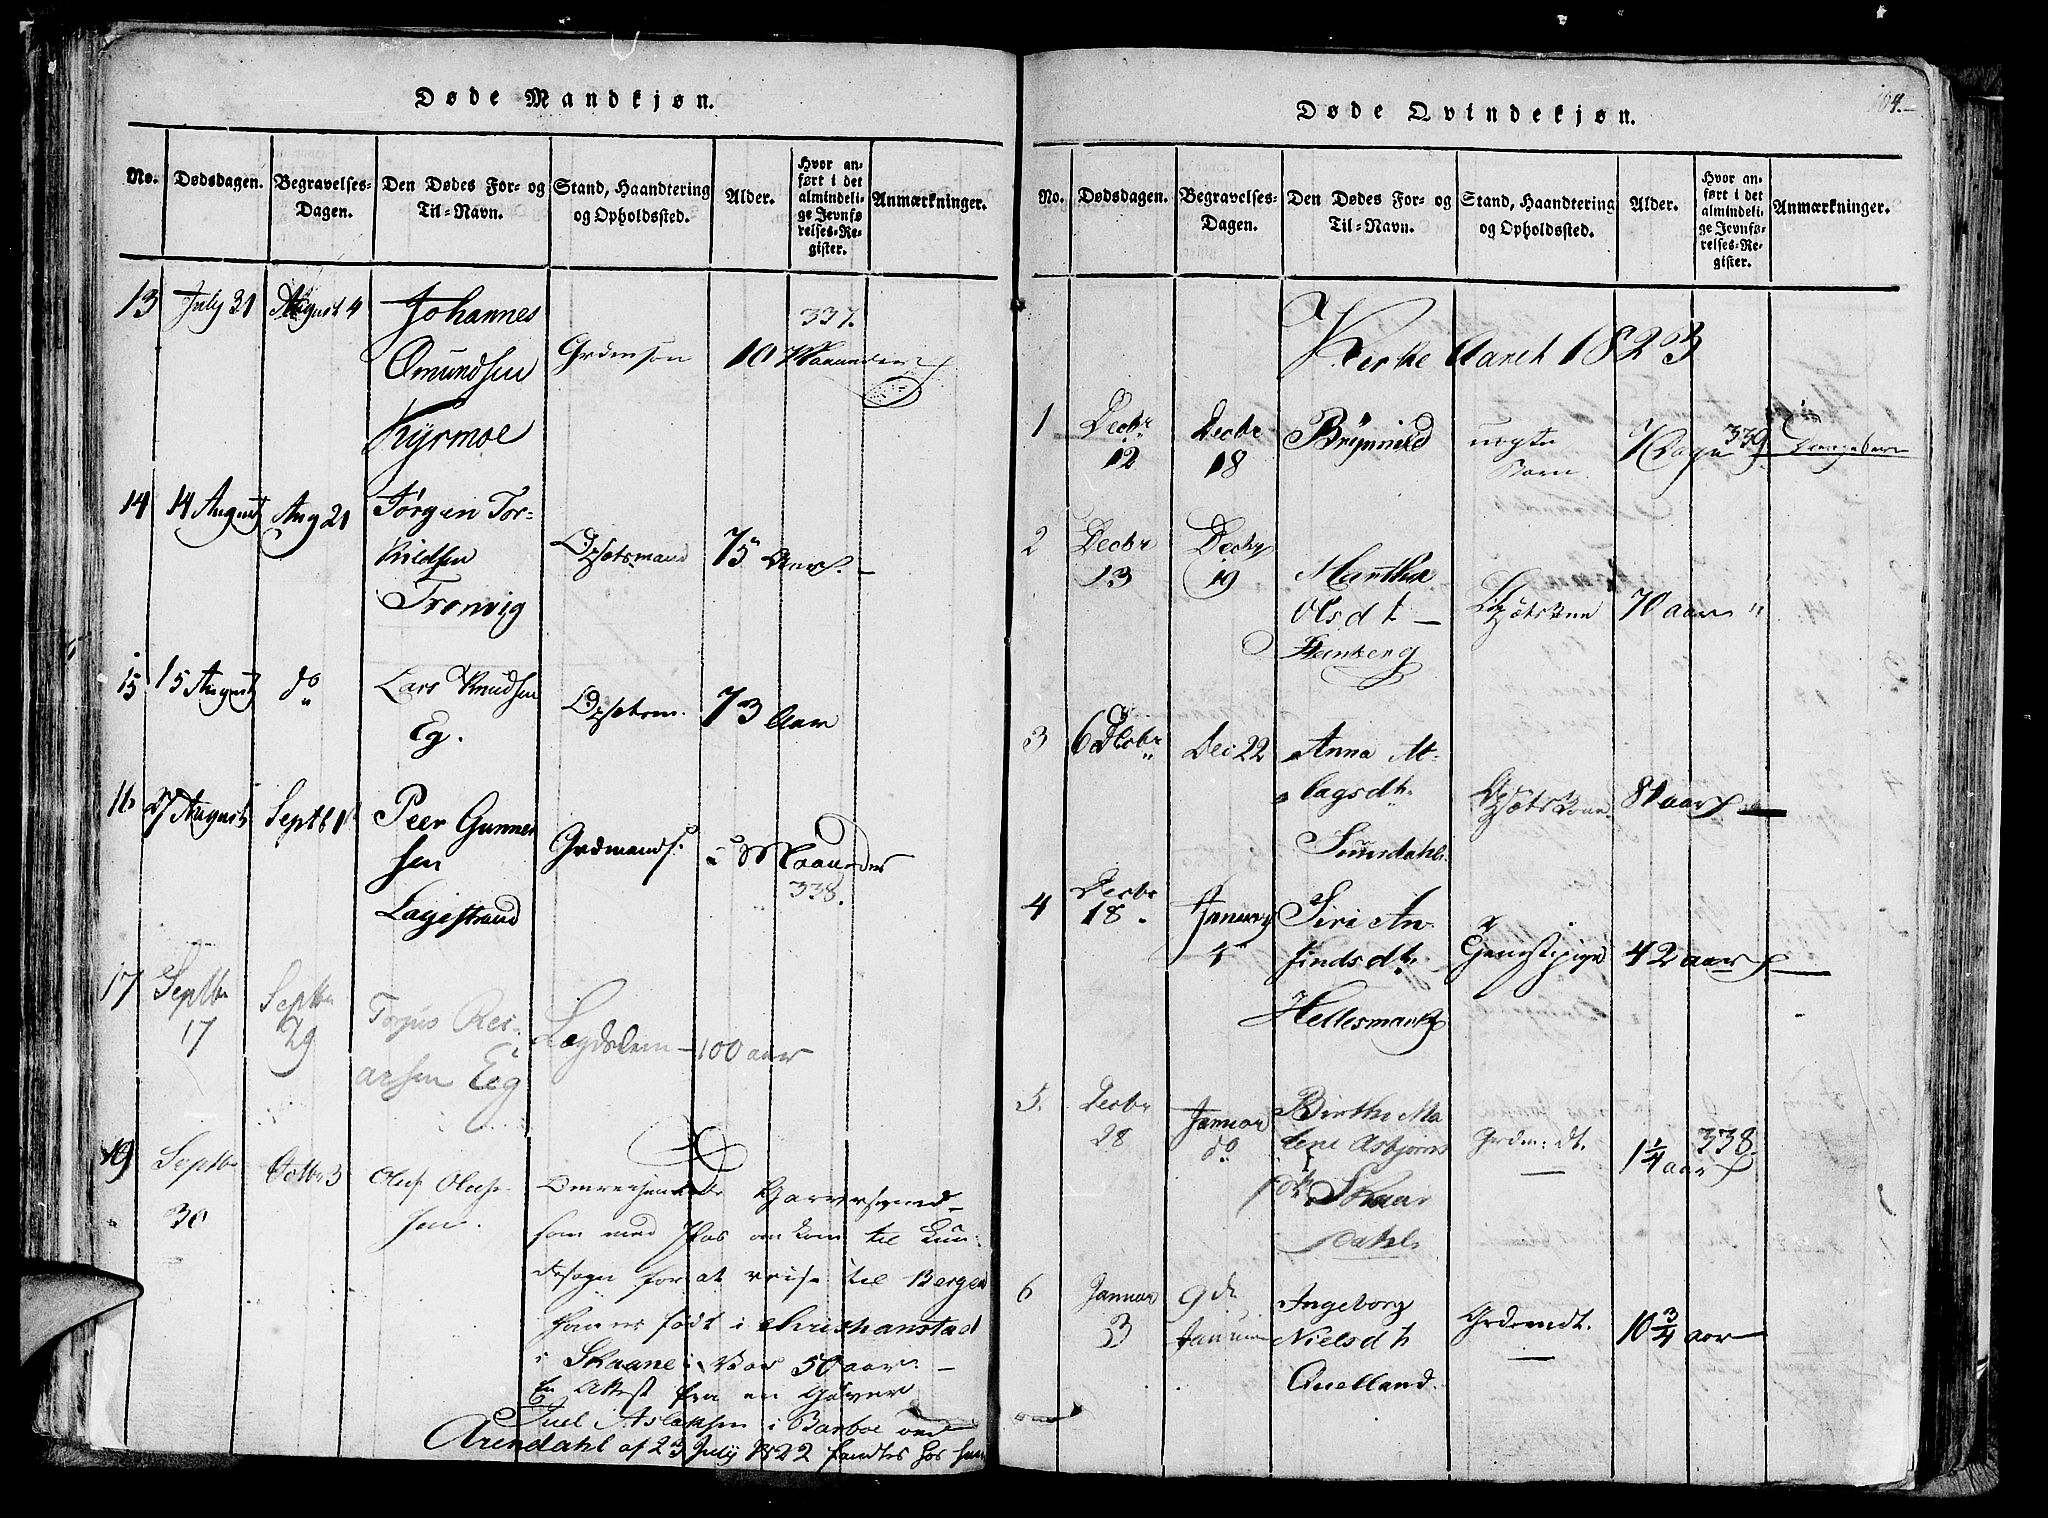 Døde Mandkjøn.
No.
Dødsdagen.
Begravelses-
Dagen.
Den Dødes For- og
Til-Navn.
Stand, Haandtering
og Opholdssted.
Alder.
Hvor an-
ført i det
almindeli-
ge Jevnfø
relses-Re-
gister.
Anmærkninger.
13 July 31 August 4 Johannes
Omundsen
Kyrmoe
Grdmsøn
337.
10 Maaneder
14 14 August Aug 21 Jørgen Tor-
kieldsen
Tronvig
Opsetsmand 75 Aar. –
15 15 August do Lars Knudsen
Eg.
Opsetsm. 73 Aar
16 27 August Septb 1 Peer Gunner
sen
Lagestrand
Grdmands. Maaneder
338.
17 Septbr
17
Septbr
29
Torjus Rei-
arsen Eeg
Lægdslem – 100 aar
19 Septbr
30
Octbr 3 Oluf Oluf-
sen.
Omreisende Garversvend
som med Pas ankom til
for at reise til Bergen
Han er født i Christianstad
i Skaane. Var 50 aar. –
En Attest fra en Garver
Juel Aslaksen i Barboe ved
Arendahl af 23 July 1822 fandtes hos ham
Døde Qvindekjøn.
104.–
No.
Dødsdagen.
Begravelses-
Dagen.
Den Dødes For- og
Til-Navn.
Stand, Haandtering
og Opholdssted.
Alder.
Hvor an-
ført i det
almindeli-
ge Jevnfø-
relses-Re-
gister.
Anmærkninger.
Kirke Aaret 1823
1 Decbr
12
Decbr
18
Brynnild uegte
Barn
7 Dage 339
2 Decbr
13
Decbr
19
Martha
Olsdt –
Steinberg
70 aar "
3 6 Decbr Dec 22 Anna A-
lagsdt.
Sunsdahl.
81 aar
4 Decbr
18.
Januar
5
Siri An-
findsdt.
Hellesmark
Tjenestpige 42 aar
5. Decbr
28
Januar
do
Birthe Ma
lene Asbjørns
dt. Skaar
dahl.
Grdm: dt. 1 1/4 aar 338.
6 Januar
3
9de
Januar
Ingeborg
Nielsdt
Quelland.
Grdmdt. 10 3/4 aar